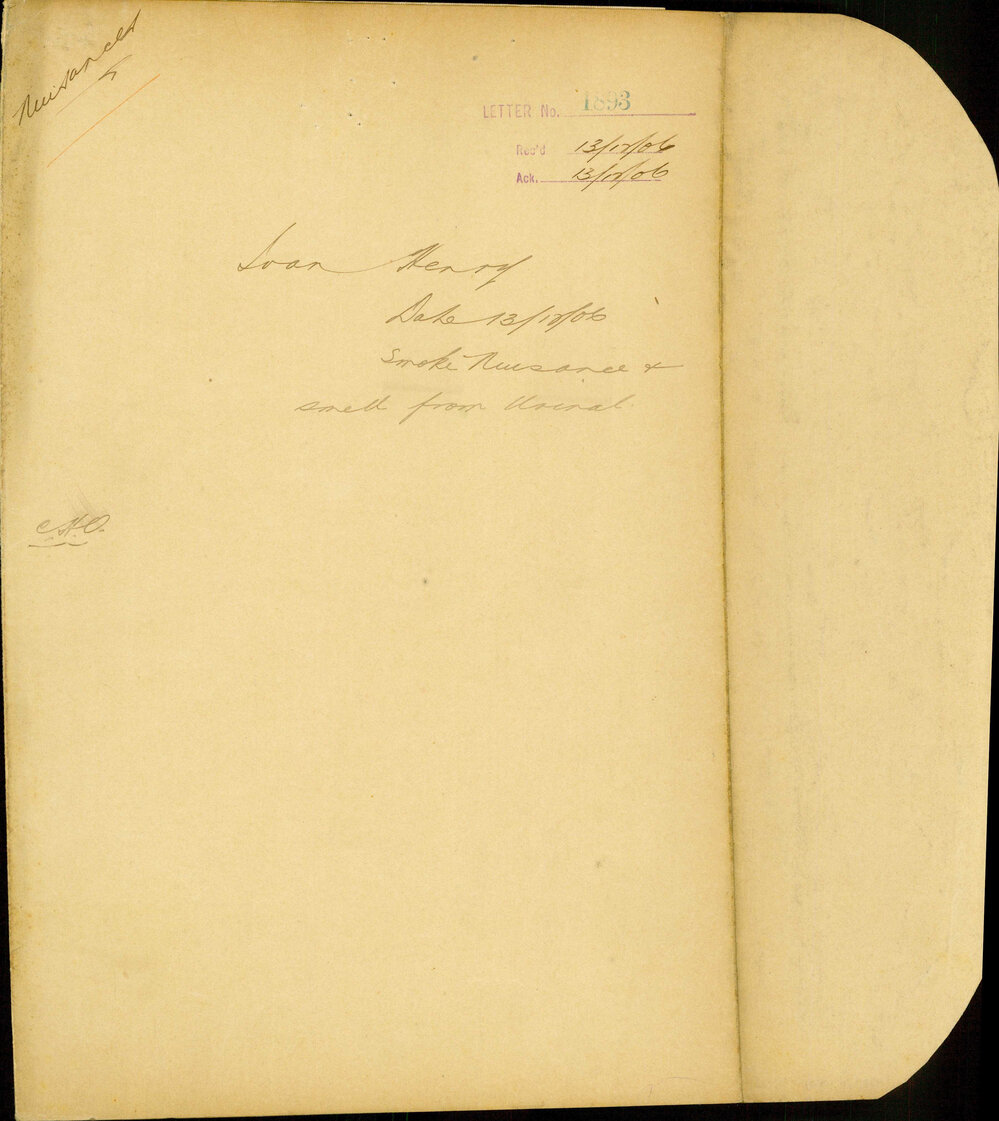 Nuisances
LETTER No. 1893
Rec'd 13/12/06
Ack. 13/12/06
Ivan Henry
Date 13/12/06
Smoke Nuisance &
smell from Urinal.
C.H.O.